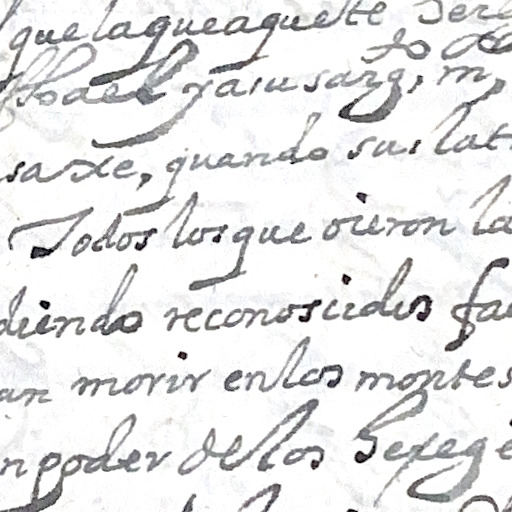 que la que aqueste
to
sarg, m,
saxe, quando sus lat
Todos los que vieron la
diendo reconoscidos fa
an morir en los montes
n poder de los